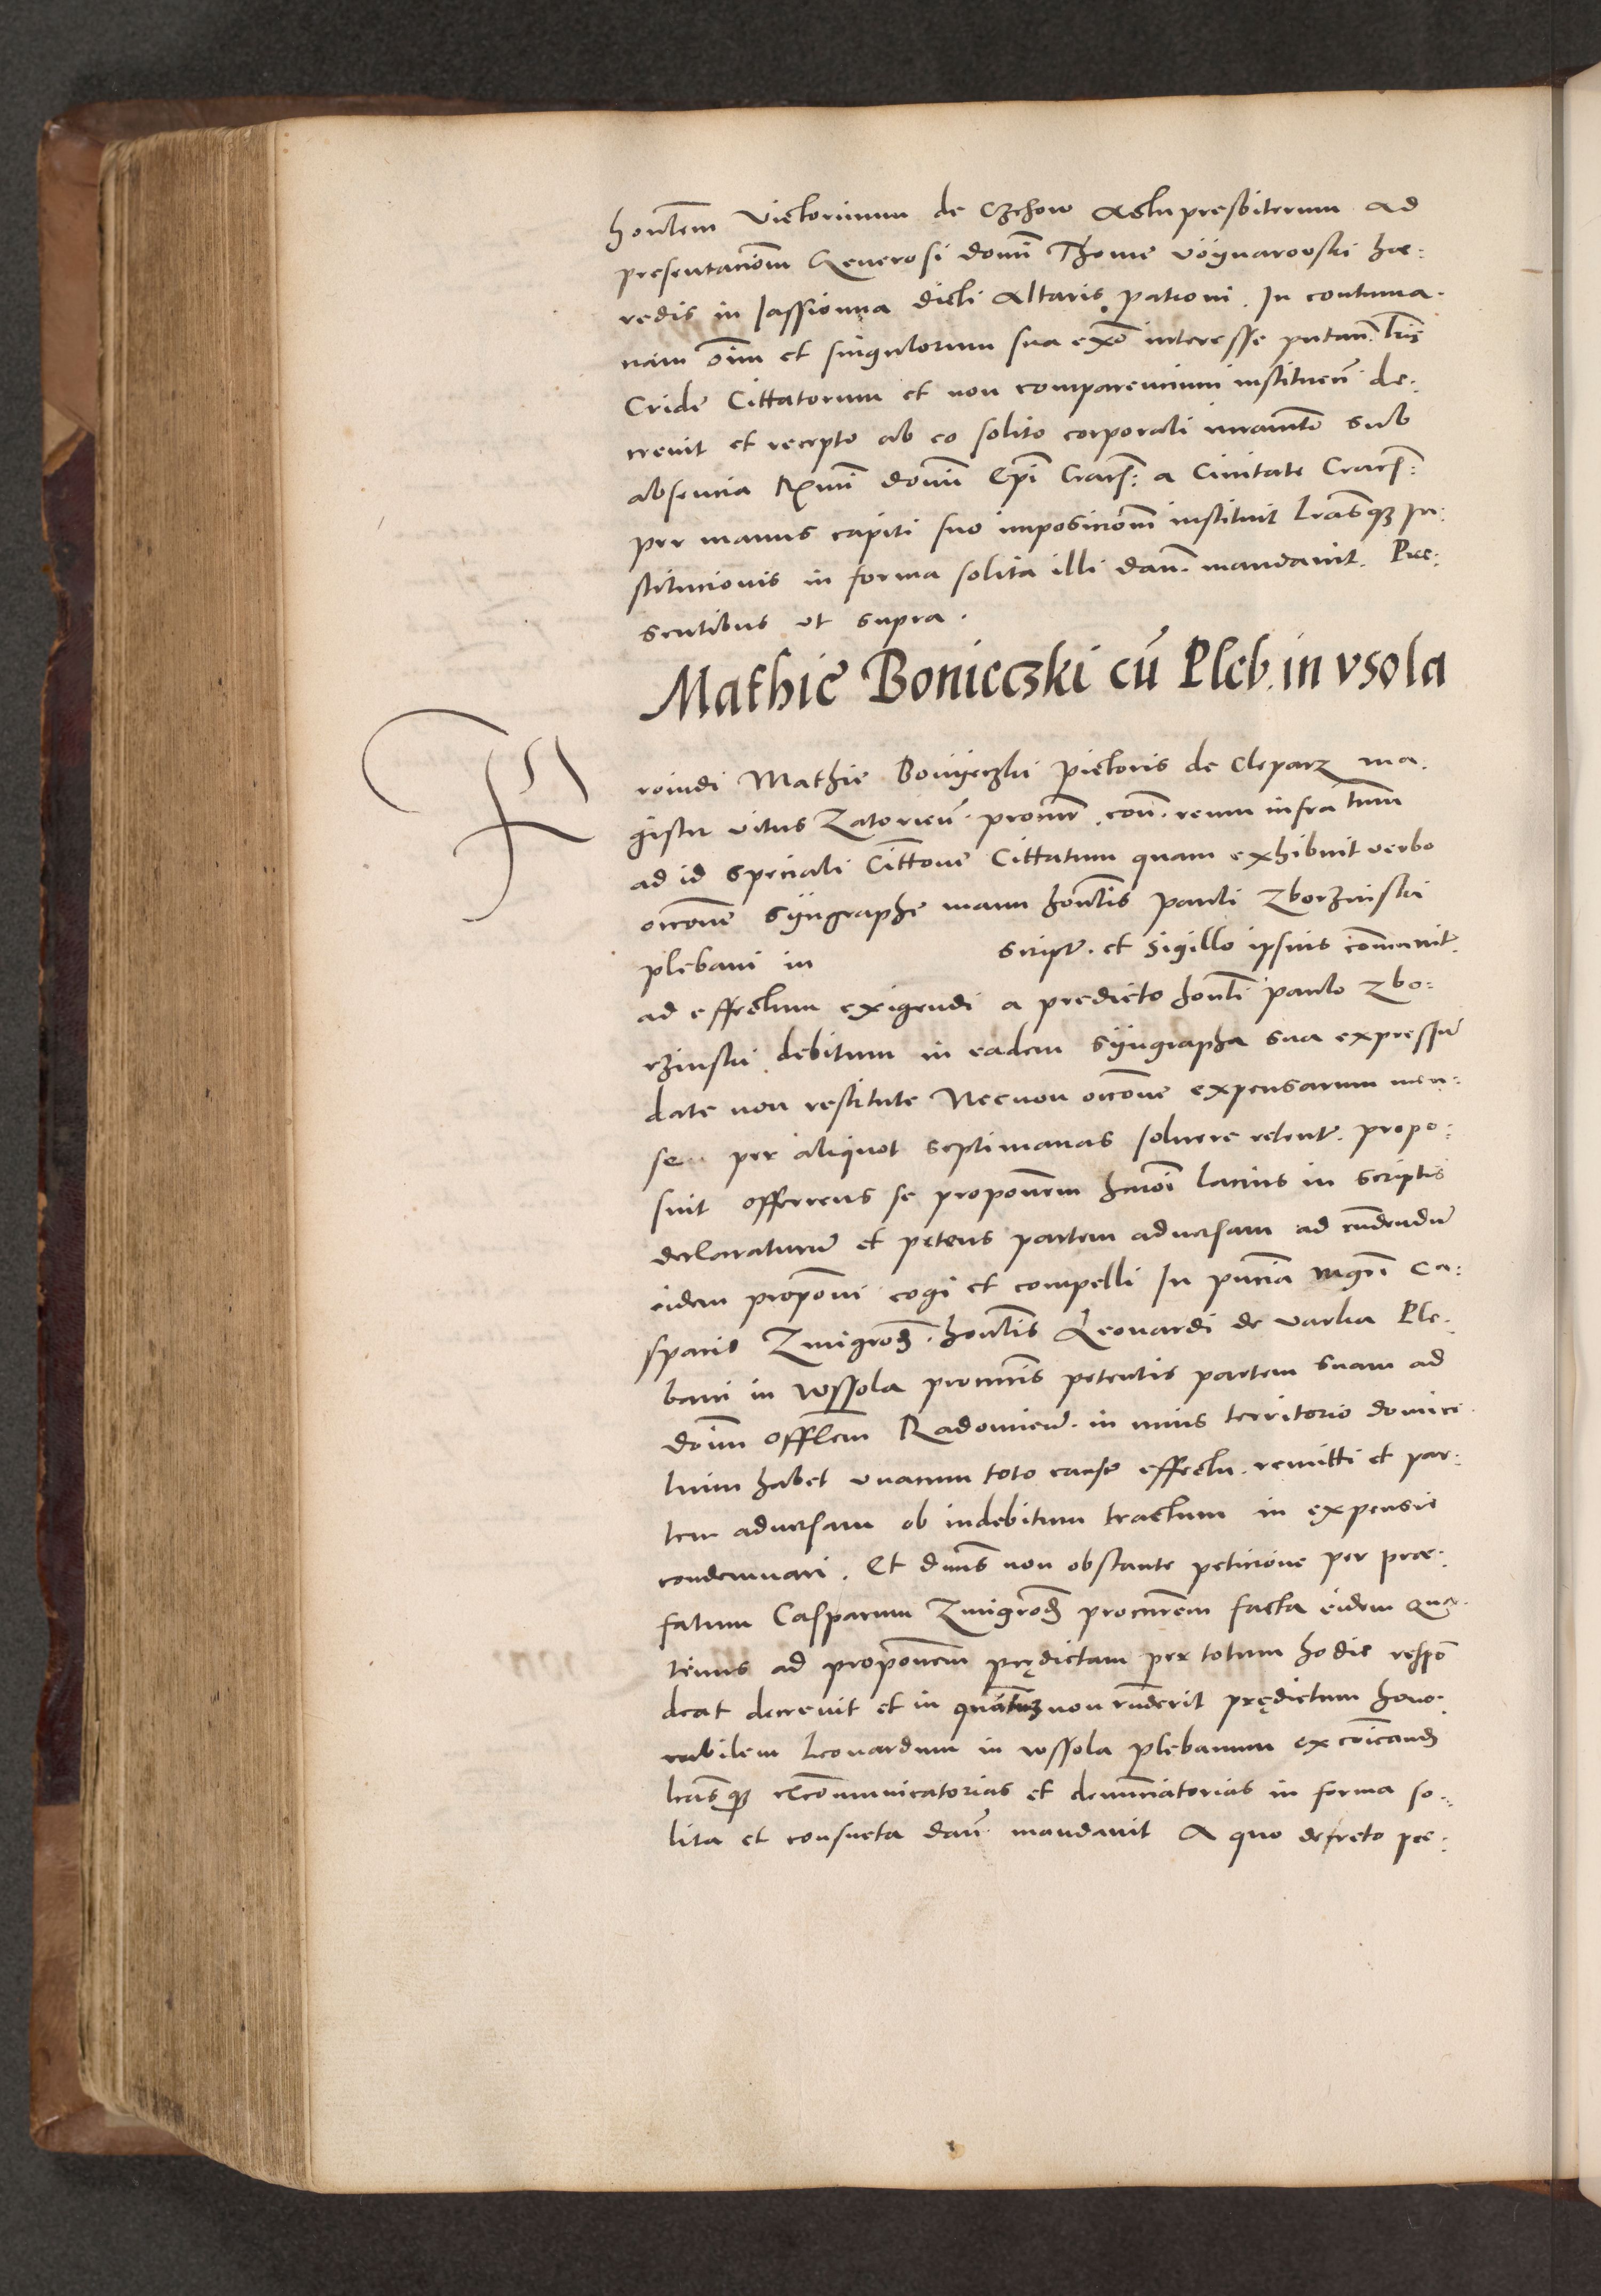 honlem Victorinum de Czchow Actu presbiterum ad
presentacionem Generosi domini Thome voynarovski hae:
redis in Jassionna dicti Altaris patroni. In contuma.
ciam oim et singulorum sua exo interesse putan. lris
Cride Cittatorum et non comparencium instituen de:
crevit et recepto ab eo solito corporali iuramto sub
absencia Rmi domi Epi Cracn: a Civitate Cracn:
per manus capiti suo imposicionem instituit lrasque In:
stitucionis in forma solita illi dan. mandavit. Pre:
sentibus ut supra.
Mathie Bonieczki cu Pleb. in vsola
Providi Mathie Boniyeczki pictoris de Cleparz ma.
gister vitus Zatorien. procur. con. reum infra tum
ad id speciali Cittone Cittatum quam exhibuit verbo
occone syngraphe manu honlis pauli Zborzinski
plebani in script. et sigillo ipsius communit.
ad effectum exigendi a predicto honli paulo Zbo:
rzinski debitum in eadem syngrapha sua expressum
date non restitute Necnon occone expensarum men:
se per aliquot septimanas solvere retent. propo:
suit offerens se proponem hmoi lacius in scriptis
declaraturum et petens partem adversam ad rndendum
eidem proponi cogi et compelli In pncia mgri Ca:
sparis Zmigrod. honlis Leonardi de varka Ple.
bani in wssola procuris petentis partem suam ad
dom offlem Radomien. in cuius territorio domici
lium habet unacum toto cause effectu. remitti et par:
tem adversam ob indebitum tractum in expensis
condemnari. Et dnus non obstante peticione per prae:
fatum Casparum Zmigrod procurem facta eidem qua.
tenus ad proponem prędictam per totum hodie respo
deat decrevit et in quantum non rnderit prędictum hono.
rabilem Leonardum in wssola plebanum excoicand
lrasque excommunicatorias et denunciatorias in forma so.
lita et consueta dan mandavit A quo decreto pre: